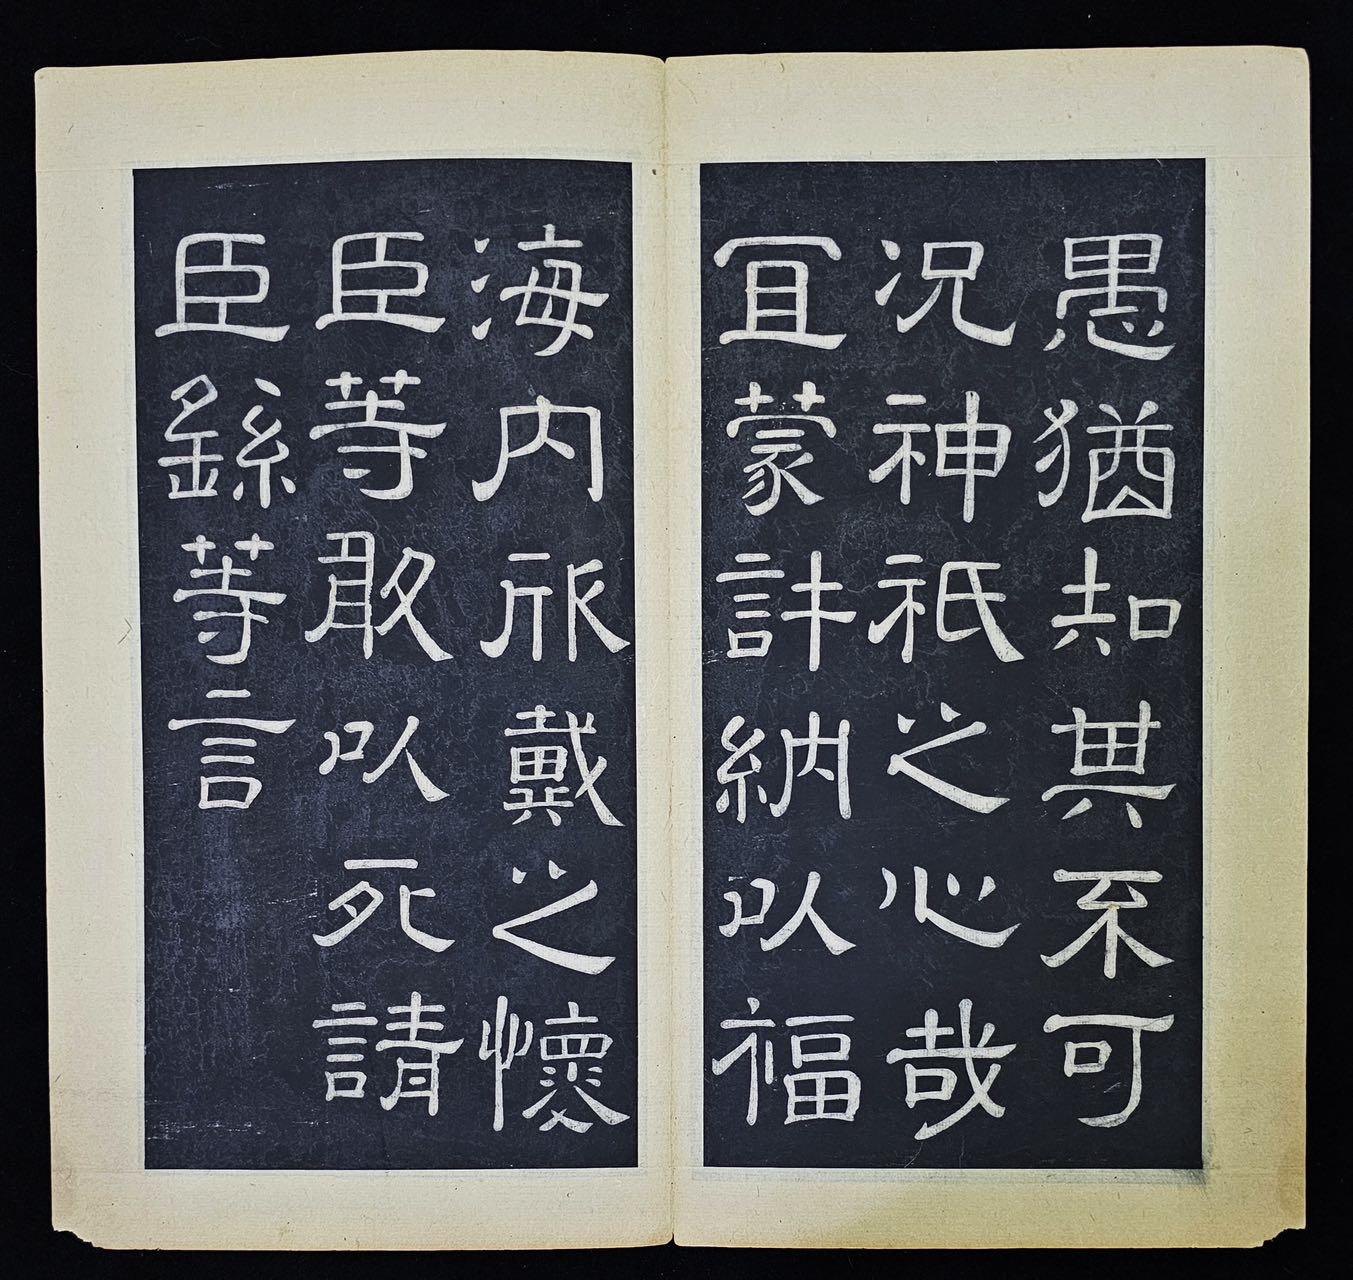 愚猶知其不可
況神祇之心哉
冝蒙許納以福
海內欣戴之懷
臣等敢以死請
臣繇等言